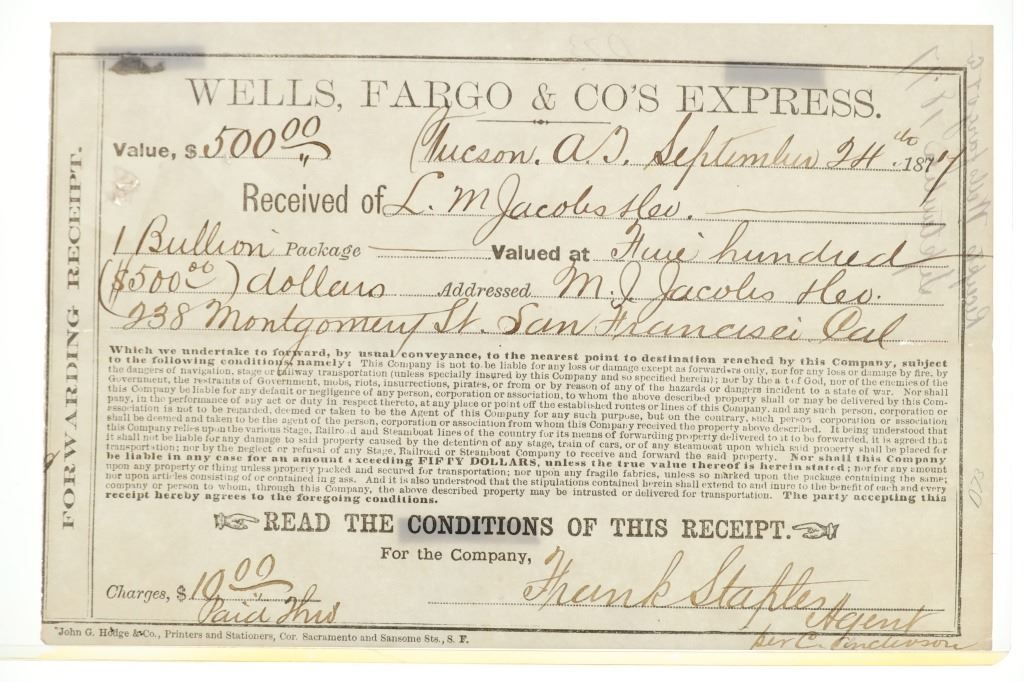 WELLS, FARGO & CO'S EXPRESS.
Value, $ 500 00
Tucson. A.T. September 24 th 1877
Received of L. M Jacobs & Co.
1 Bullion Package Valued at Five hundred
($500.00) dollars Addressed M. J. Jacobs & Co.
238 Montgomery St. San Francisci Cal
Which we undertake to forward, by usual conveyance, to the nearest point to destination reached by this Company, subject
to the following conditions, namely: This Company is not to be liable for any loss or damage except as forwarders only, nor for any loss or damage by fire, by
the dangers of navigation, stage or railway transportation (unless specially insured by this Company and so specified herein); nor by the act of God, nor of the enemies of the
Government, the restraints of Government, mobs, riots, insurrections, pirates, or from or by reason of any of the hazards or dangers incident to a state of war. Nor shall
this Company be liable for any default or negligence of any person, corporation or association, to whom the above described property shall or may be delivered by this Com-
pany, in the performance of any act or duty in respect thereto, at any place or point off the established routes or lines of this Company, and any such person, corporation or
association is not to be regarded, deemed or taken to be the Agent of this Company for any such purpose, but on the contrary, such person corporation or association
shall be deemed and taken to be the agent of the person, corporation or association from whom this Company received the property above described. It being understood that
this Company relies upon the various Stage, Railroad and Steamboat lines of the country for its means of forwarding property delivered to it to be forwarded, it is agreed that
it shall not be liable for any damage to said property caused by the detention of any stage, train of cars, or of any steamboat upon which said property shall be placed for
transportation; nor by the neglect or refusal of any Stage, Railroad or Steamboat Company to receive and forward the said property. Nor shall this Company
be liable in any case for an amount exceeding FIFTY DOLLARS, unless the true value thereof is herein stated; nor for any amount
upon any property or thing unless properly packed and secured for transportation; nor upon any fragile fabrics, unless so marked upon the package containing the same;
nor upon articles consisting of or contained in glass. And it is also understood that the stipulations contained herein shall extend to and inure to the benefit of each and every
company or person to whom, through this Company, the above described property may be intrusted or delivered for transportation. The party accepting this
receipt hereby agrees to the foregoing conditions.
READ THE CONDITIONS OF THIS RECEIPT.
For the Company,
Charges, $ 10 00
Paid Thro
Frank Staples
Agent
per C. Anderson
John G. Hodge & Co., Printers and Stationers, Cor. Sacramento and Sansome Sts., S. F.
FORWARDING RECEIPT.